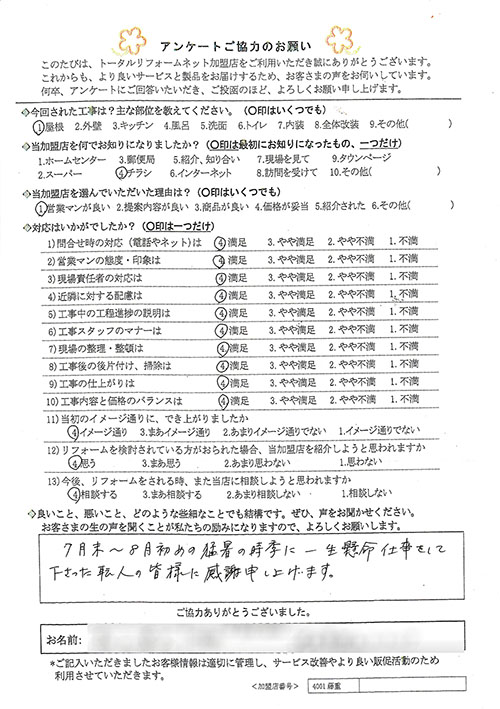 アンケートご協力のお願い
このたびは、トータルリフォームネット加盟店をご利用いただき誠にありがとうございます。
これからも、より良いサービスと製品をお届けするため、お客さまの声をお伺いしています。
何卒、アンケートにご回答いただき、ご投函のほど、よろしくお願い申し上げます。
◇今回された工事は？主な部位を教えてください。（〇印はいくつでも）
1.屋根 2.外壁 3.キッチン 4.風呂 5.洗面 6.トイレ 7.内装 8.全体改装 9.その他( )
◇当加盟店を何でお知りになりましたか？（〇印は最初にお知りになったもの、一つだけ）
1.ホームセンター 3.郵便局 5.紹介、知り合い 7.現場を見て 9.タウンページ
2.スーパー 4.チラシ 6.インターネット 8.訪問を受けて 10.その他( )
◇当加盟店を選んでいただいた理由は？（〇印はいくつでも）
1.営業マンが良い 2.提案内容が良い 3.商品が良い 4.価格が妥当 5.紹介された 6.その他( )
◇対応はいかがでしたか？（〇印は一つだけ）
1)問合せ時の対応（電話やネット）は 4.満足 3.やや満足 2.やや不満 1.不満
2)営業マンの態度・印象は 4.満足 3.やや満足 2.やや不満 1.不満
3)現場責任者の対応は 4.満足 3.やや満足 2.やや不満 1.不満
4)近隣に対する配慮は 4.満足 3.やや満足 2.やや不満 1.不満
5)工事中の工程進捗の説明は 4.満足 3.やや満足 2.やや不満 1.不満
6)工事スタッフのマナーは 4.満足 3.やや満足 2.やや不満 1.不満
7)現場の整理・整頓は 4.満足 3.やや満足 2.やや不満 1.不満
8)工事後の後片付け、掃除は 4.満足 3.やや満足 2.やや不満 1.不満
9)工事の仕上がりは 4.満足 3.やや満足 2.やや不満 1.不満
10)工事内容と価格のバランスは 4.満足 3.やや満足 2.やや不満 1.不満
11)当初のイメージ通りに、でき上がりましたか
4.イメージ通り 3.まあイメージ通り 2.あまりイメージ通りでない 1.イメージ通りでない
12)リフォームを検討されている方がおられた場合、当加盟店を紹介しようと思われますか
4.思う 3.まあ思う 2.あまり思わない 1.思わない
13)今後、リフォームをされる時、また当店に相談しようと思われますか
4.相談する 3.まあ相談する 2.あまり相談しない 1.相談しない
◇良いこと、悪いこと、どのような些細なことでも結構です。ぜひ、声をお聞かせください。
お客さまの生の声を聞くことが私たちの励みになりますので、よろしくお願いします。
7月末～8月初めの猛暑の時季に一生懸命仕事をして
下さった職人の皆様に感謝申し上げます。
ご協力ありがとうございました。
お名前:
*ご記入いただきましたお客様情報は適切に管理し、サービス改善やより良い販促活動のため
利用させていただきます。
＜加盟店番号＞ 4001 藤重